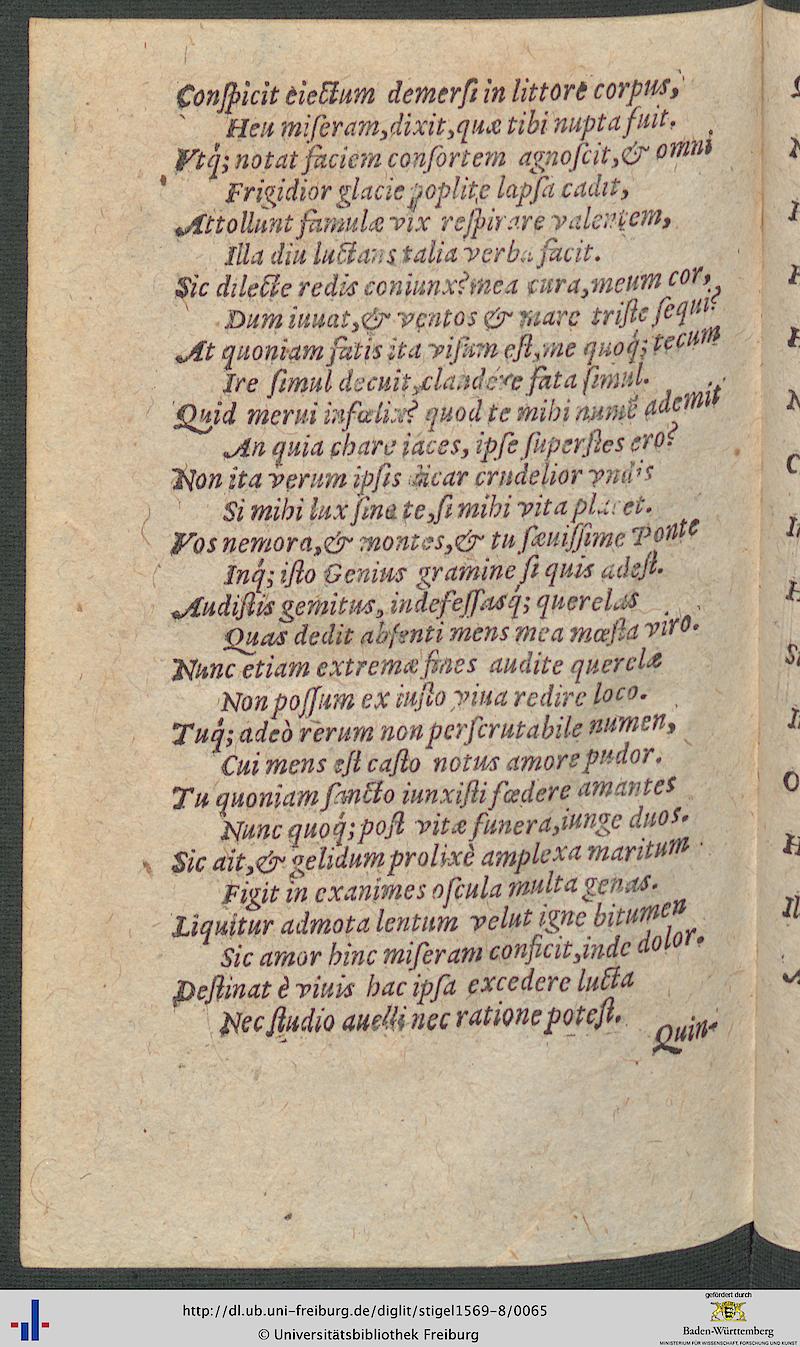 Conſpicit eiectum demerſi in littore corpus,
Heu miſeram, dixit, quæ tibi nupta fuit.
Vtq́; notat faciem conſortem agnoſcit, & omni
Frigidior glacie poplite lapſa cadit,
Attollunt famulæ vix reſpirare valentem,
Illa diu luctans talia verba facit.
Sic dilecte redis coniunx? mea cura, meum cor,
Dum iuuat, & ventos & mare triſte ſequi?
At quoniam fatis ita viſum eſt, me quoq́; tecum
Ire ſimul decuit, claudere fata ſimul.
Quid merui infœlix? quod te mihi numē ademit
An quia chare iaces, ipſe ſuperſtes ero?
Non ita verum ipſis dicar crudelior vndis
Si mihi lux ſine te, ſi mihi vita placet.
Vos nemora, & montes, & tu ſæuiſſime Ponte
Inq́; iſto Genius gramine ſi quis adeſt.
Audiſtis gemitus, indefeſſasq́; querelas
Quas dedit abſenti mens mea mœſta viro.
Nunc etiam extremæ fines audite querelæ
Non poſſum ex iuſto viua redire loco.
Tuq́; adeò rerum non perſcrutabile numen,
Cui mens eſt caſto notus amore pudor.
Tu quoniam ſancto iunxiſti fœdere amantes
Nunc quoq́; poſt vitæ funera, iunge duos.
Sic ait, & gelidum prolixè amplexa maritum
Figit in exanimes oſcula multa genas.
Liquitur admota lentum velut igne bitumen
Sic amor hinc miſeram conficit, inde dolor.
Deſtinat è viuis hac ipſa excedere lucta
Nec ſtudio auelli nec ratione poteſt.
Quin-
http://dl.ub.uni-freiburg.de/diglit/stigel1569-8/0065
© Universitätsbibliothek Freiburg
gefördert durch
Baden-Württemberg
MINISTERIUM FÜR WISSENSCHAFT, FORSCHUNG UND KUNST